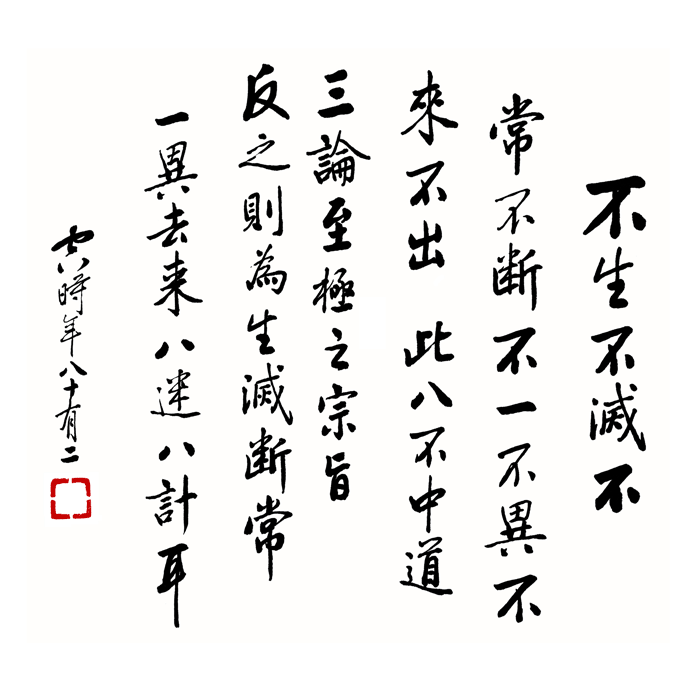 不生不滅不
常不斷不一不異不
來不出 此八不中道
三論至極之宗旨
反之則為生滅断常
一異去来八迷八計耳
時年八十有二